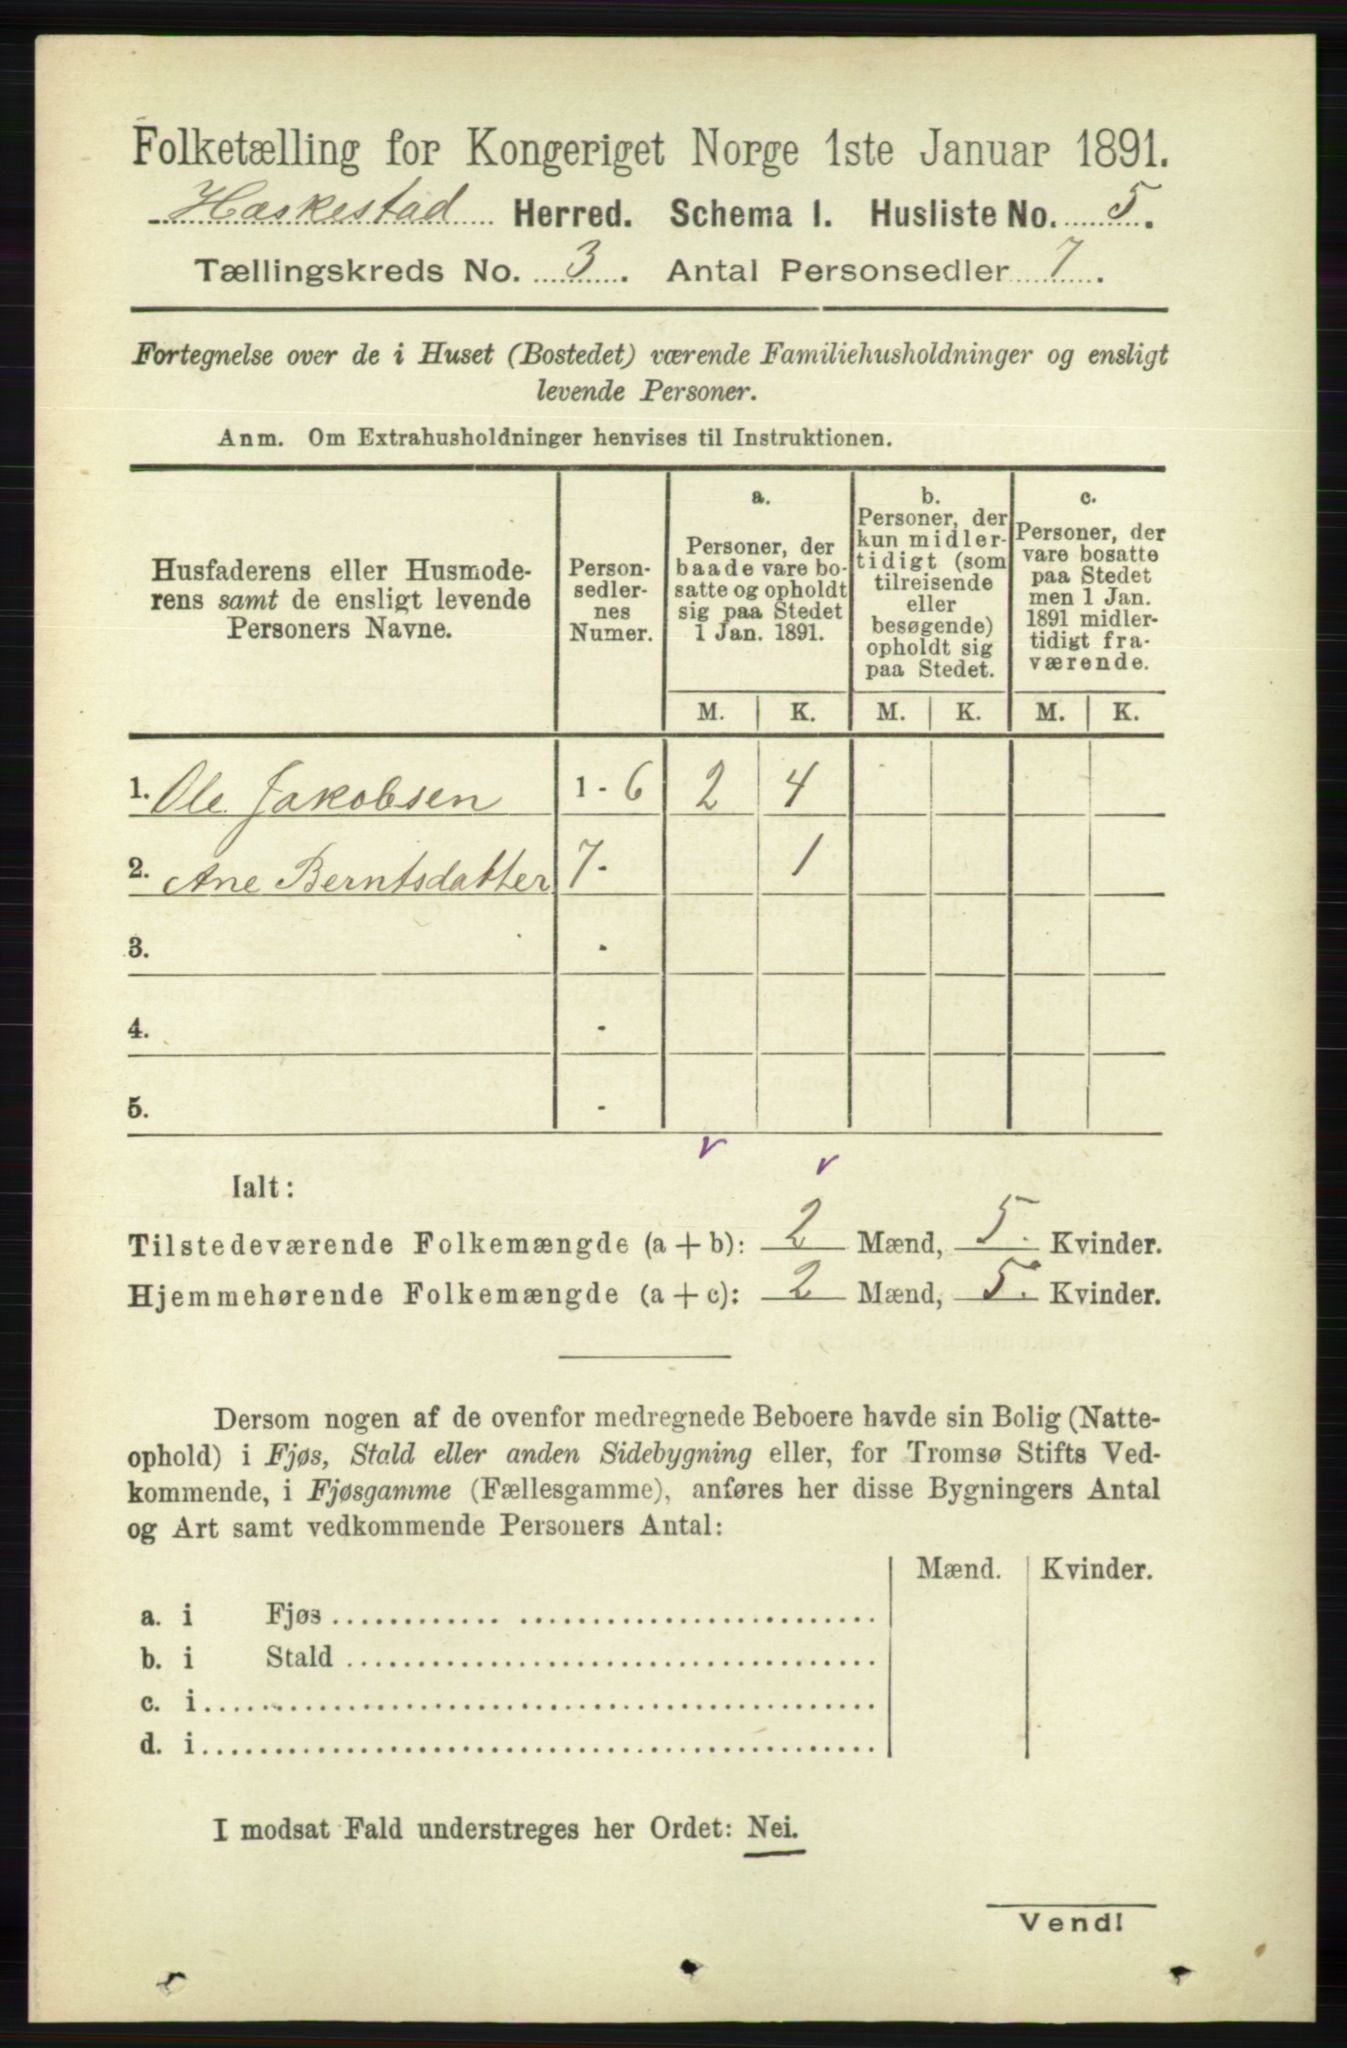 Folketælling for Kongeriget Norge 1ste Januar 1891.
Haskestad Herred. Schema I. Husliste No. 5.
Tællingskreds No. 3. Antal Personsedler 7.
Fortegnelse over de i Huset (Bostedet) værende Familiehusholdninger og ensligt
levende Personer.
Anm. Om Extrahusholdninger henvises til Instruktionen.
Husfaderens eller Husmode-
rens samt de ensligt levende
Personers Navne.
Person-
sedler-
nes
Numer.
a.
Personer, der
baade vare bo-
satte og opholdt
sig paa Stedet
1 Jan. 1891.
b.
Personer, der
kun midler-
tidigt (som
tilreisende
eller
besøgende)
opholdt sig
paa Stedet.
c.
Personer, der
vare bosatte
paa Stedet
men 1 Jan.
1891 midler-
tidigt fra-
værende.
M. K. M. K. M. K.
1. Ole Jakobsen 1 - 6 2 4
2. Ane Berntsdatter 7 - 1
3. -
4. -
5. -
Ialt:
Tilstedeværende Folkemængde (a + b): 2 Mænd, 5. Kvinder.
Hjemmehørende Folkemængde (a + c): 2 Mænd, 5. Kvinder.
Dersom nogen af de ovenfor medregnede Beboere havde sin Bolig (Natte-
ophold) i Fjøs, Stald eller anden Sidebygning eller, for Tromsø Stifts Ved-
kommende, i Fjøsgamme (Fællesgamme), anføres her disse Bygningers Antal
og Art samt vedkommende Personers Antal:
Mænd. Kvinder.
a. i Fjøs
b. i Stald
c. i
d. i
I modsat Fald understreges her Ordet: Nei.
Vend!